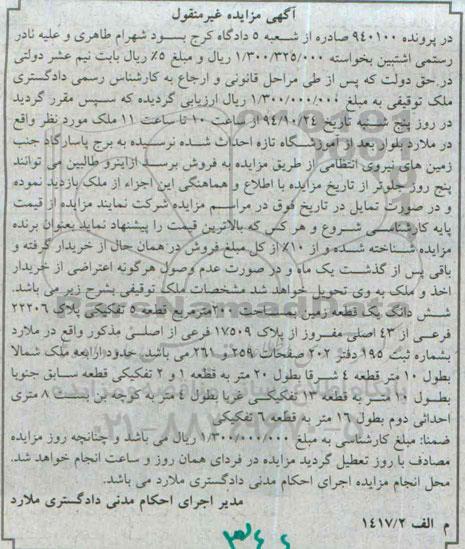 آگهی مزایده غیرمنقول
در پرونده ۹۴۰۱۰۰ صادره از شعبه ۵ دادگاه کرج بسود شهرام طاهری و علیه نادر
رستمی اشتبین بخواسته ۱/۳۰۰/۳۲۵/۰۰۰ ریال و مبلغ ۵٪ ریال بابت نیم عشر دولتی
در حق دولت که پس از طی مراحل قانونی و ارجاع به کارشناس رسمی دادگستری
ملک توقیفی به مبلغ ۱/۳۰۰/۰۰۰/۰۰۰ ریال ارزیابی گردیده که سپس مقرر گردید
در روز پنج شنبه تاریخ ۹۴/۱۰/۲۴ از ساعت ۱۰ تا ساعت ۱۱ ملک مورد نظر واقع
در ملارد بلوار بعد از آموزشگاه تازه احداث شده نرسیده به برج پاسارگاد جنب
زمین های نیروی انتظامی از طریق مزایده به فروش برسد ازاینرو طالبین می توانند
پنج روز جلوتر از تاریخ مزایده با اطلاع و هماهنگی این اجراء از ملک بازدید نموده
و در صورت تمایل در تاریخ فوق در مراسم مزایده شرکت نمایند مزایده از قیمت
پایه کارشناسی شروع و هر کس که بالاترین قیمت را پیشنهاد نماید بعنوان برنده
مزایده شناخته شده و از ۱۰٪ از کل مبلغ فروش در همان حال از خریدار گرفته و
باقی پس از گذشت یک ماه و در صورت عدم وصول هرگونه اعتراضی از خریدار
اخذ و ملک به وی تحویل خواهد شد مشخصات ملک توقیفی بشرح زیر می باشد.
شش دانگ یک قطعه زمین بمساحت ۲۰۰مترمربع قطعه ۵ تفکیکی پلاک ۲۲۲۰۶
فرعی از ۴۳ اصلی مفروز از پلاک ۱۷۵۰۹ فرعی از اصلی مذکور واقع در ملارد
بشماره ثبت ۱۹۵ دفتر ۲۰۲ صفحات ۲۵۹ و ۲۶۱ می باشد. حدود اربعه ملک شمالا
بطول ۱۰ متر قطعه ۴ شرقا بطول ۲۰ متر به قطعه ۱ و ۲ تفکیکی قطعه سابق جنوبا
بطول ۱۰ متر به قطعه ۱۳ تفکیکی غربا بطول ۴ متر به کوچه بن بست ۸ متری
احداثی دوم بطول ۱۶ متر به قطعه ۶ تفکیکی
ضمنا: مبلغ کارشناسی به مبلغ ۱/۳۰۰/۰۰۰/۰۰۰ ریال می باشد و چنانچه روز مزایده
مصادف با روز تعطیل گردید مزایده در فردای همان روز و ساعت انجام خواهد شد.
محل انجام مزایده اجرای احکام مدنی دادگستری ملارد می باشد.
مدیر اجرای احکام مدنی دادگستری ملارد
م الف ۱۴۱۷/۲
ParsNamadData
۰۲۱-۸۸۳۴۹۶۷۰-۵